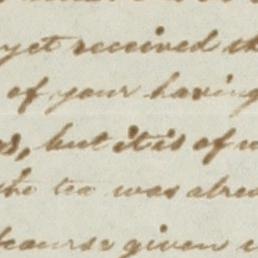 yet received th
of your having
s, but it is of u
the tea was alrea
course given